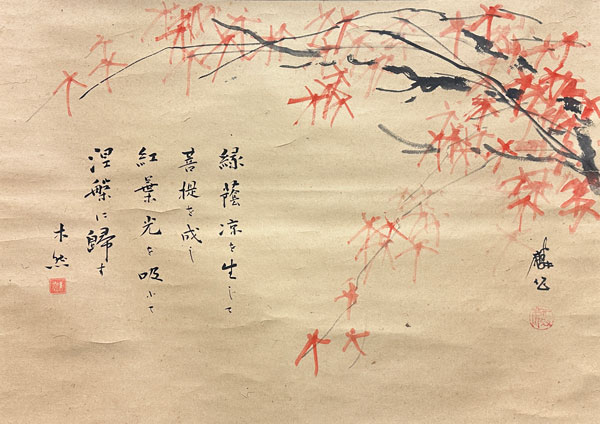 緑蔭涼を生じて
菩提を成し
紅葉光を吸ふて
涅槃に歸す
木然